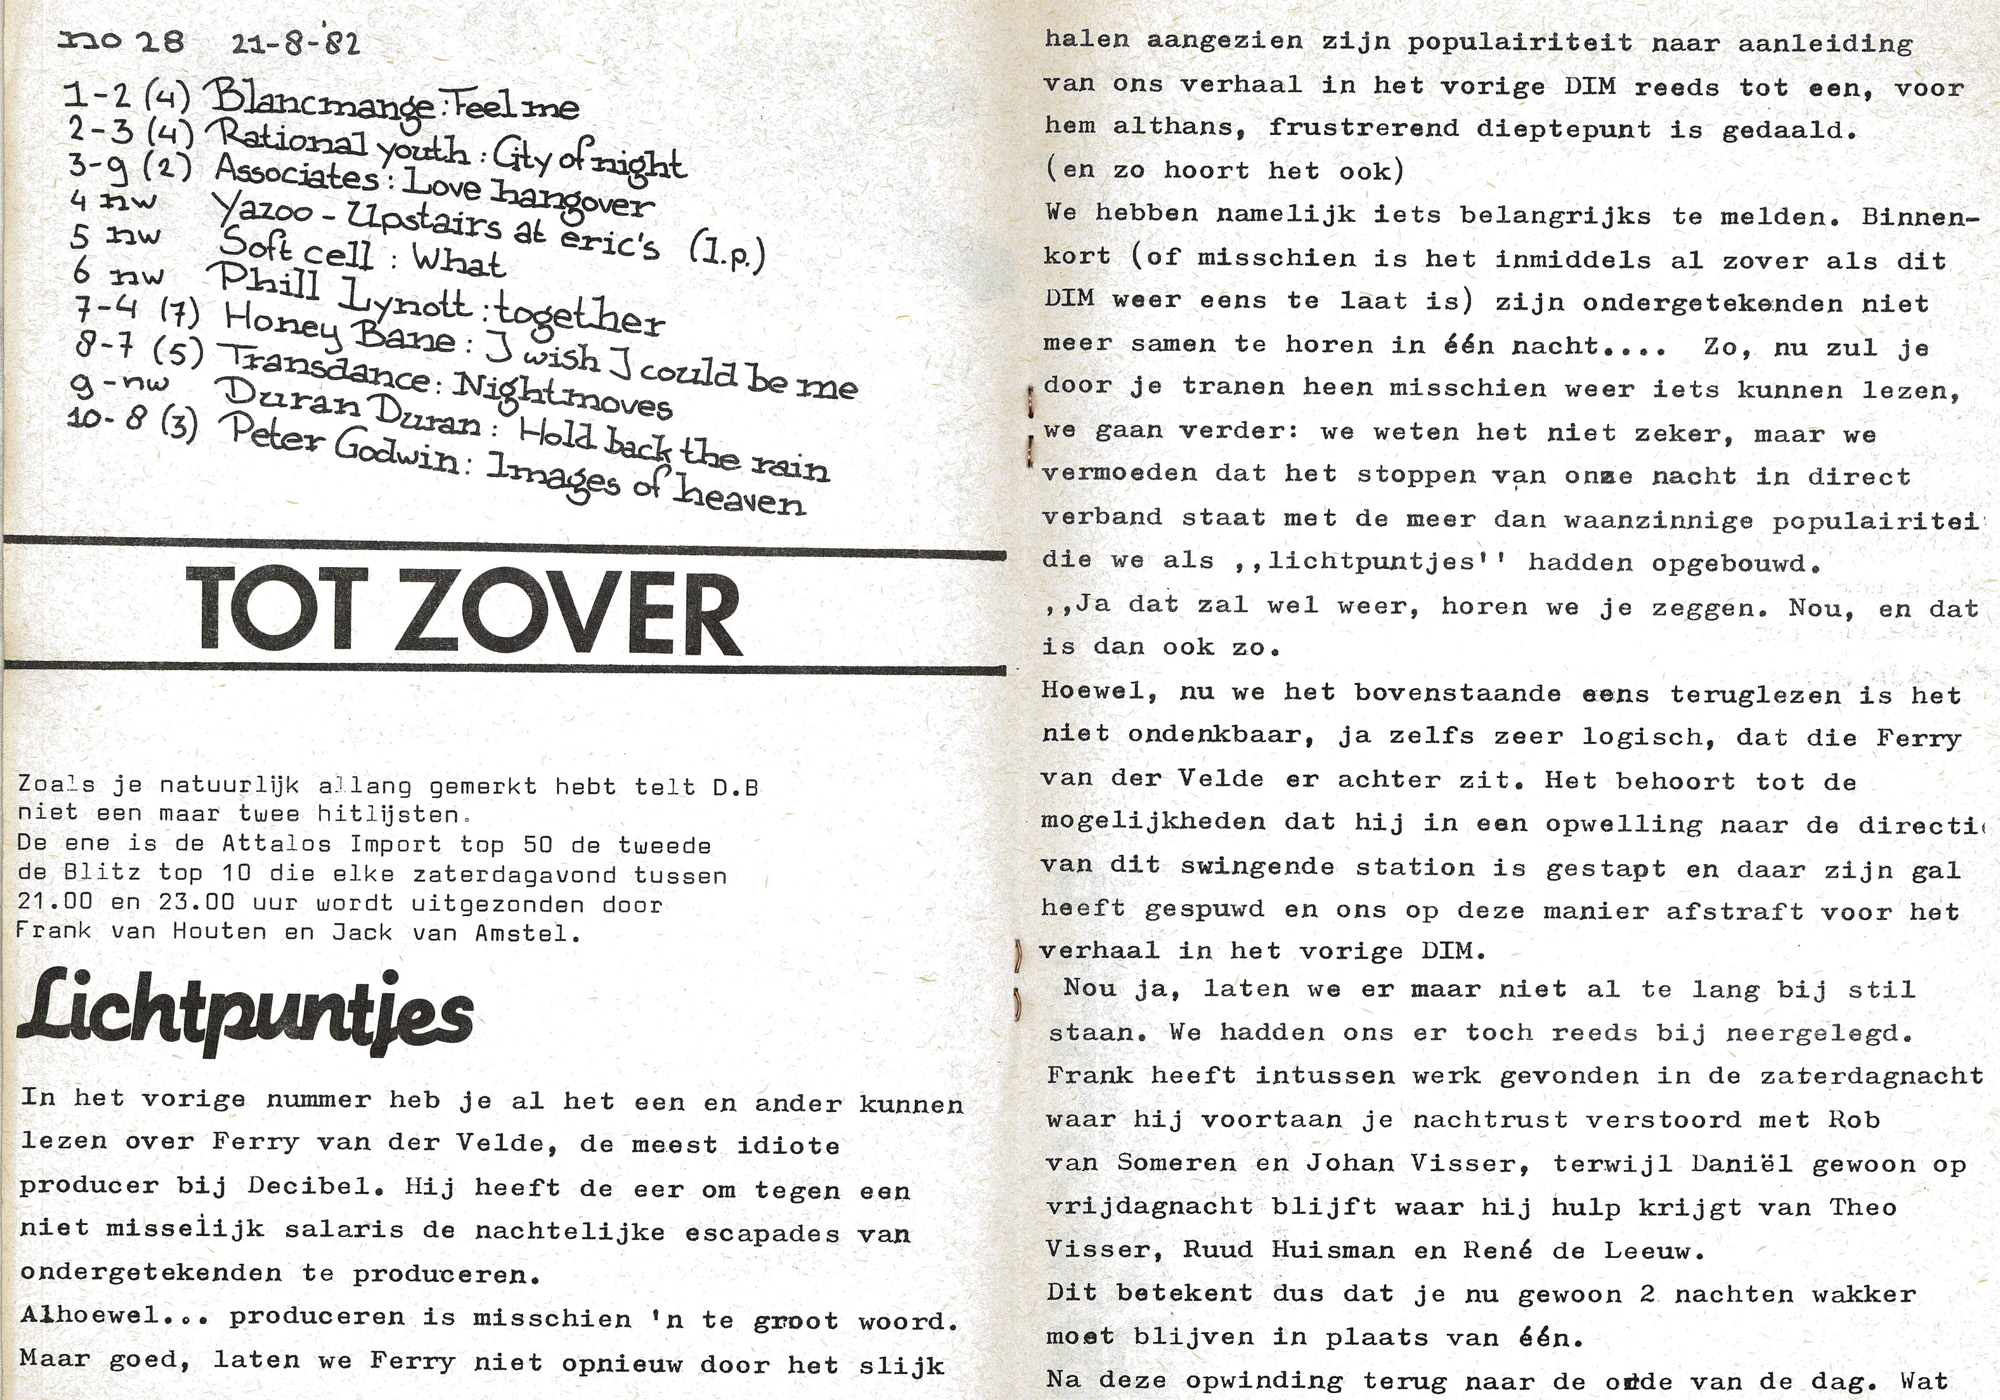 no 28 21-8-'82
1-2 (4) Blancmange: Feel me
2-3 (4) Rational youth: City of night
3-9 (2) Associates: Love hangover
4 nw Yazoo - Upstairs at eric's (l.p.)
5 nw Soft cell: What
6 nw Phill Lynott: together
7-4 (7) Honey Bane: I wish I could be me
8-7 (5) Transdance: Nightmoves
9-nw Duran Duran: Hold back the rain
10-8 (3) Peter Godwin: Images of heaven
TOT ZOVER
Zoals je natuurlijk allang gemerkt hebt telt D.B
niet een maar twee hitlijsten.
De ene is de Attalos Import top 50 de tweede
de Blitz top 10 die elke zaterdagavond tussen
21.00 en 23.00 uur wordt uitgezonden door
Frank van Houten en Jack van Amstel.
Lichtpuntjes
In het vorige nummer heb je al het een en ander kunnen
lezen over Ferry van der Velde, de meest idiote
producer bij Decibel. Hij heeft de eer om tegen een
niet misselijk salaris de nachtelijke escapades van
ondergetekenden te produceren.
Alhoewel... produceren is misschien 'n te groot woord.
Maar goed, laten we Ferry niet opnieuw door het slijk
halen aangezien zijn populairiteit naar aanleiding
van ons verhaal in het vorige DIM reeds tot een, voor
hem althans, frustrerend dieptepunt is gedaald.
(en zo hoort het ook)
We hebben namelijk iets belangrijks te melden. Binnen-
kort (of misschien is het inmiddels al zover als dit
DIM weer eens te laat is) zijn ondergetekenden niet
meer samen te horen in één nacht.... Zo, nu zul je
door je tranen heen misschien weer iets kunnen lezen,
we gaan verder: we weten het niet zeker, maar we
vermoeden dat het stoppen van onze nacht in direct
verband staat met de meer dan waanzinnige populairitei
die we als ,,lichtpuntjes'' hadden opgebouwd.
,,Ja dat zal wel weer, horen we je zeggen. Nou, en dat
is dan ook zo.
Hoewel, nu we het bovenstaande eens teruglezen is het
niet ondenkbaar, ja zelfs zeer logisch, dat die Ferry
van der Velde er achter zit. Het behoort tot de
mogelijkheden dat hij in een opwelling naar de directi
van dit swingende station is gestapt en daar zijn gal
heeft gespuwd en ons op deze manier afstraft voor het
verhaal in het vorige DIM.
Nou ja, laten we er maar niet al te lang bij stil
staan. We hadden ons er toch reeds bij neergelegd.
Frank heeft intussen werk gevonden in de zaterdagnacht
waar hij voortaan je nachtrust verstoord met Rob
van Someren en Johan Visser, terwijl Daniël gewoon op
vrijdagnacht blijft waar hij hulp krijgt van Theo
Visser, Ruud Huisman en René de Leeuw.
Dit betekent dus dat je nu gewoon 2 nachten wakker
moet blijven in plaats van één.
Na deze opwinding terug naar de orde van de dag. Wat